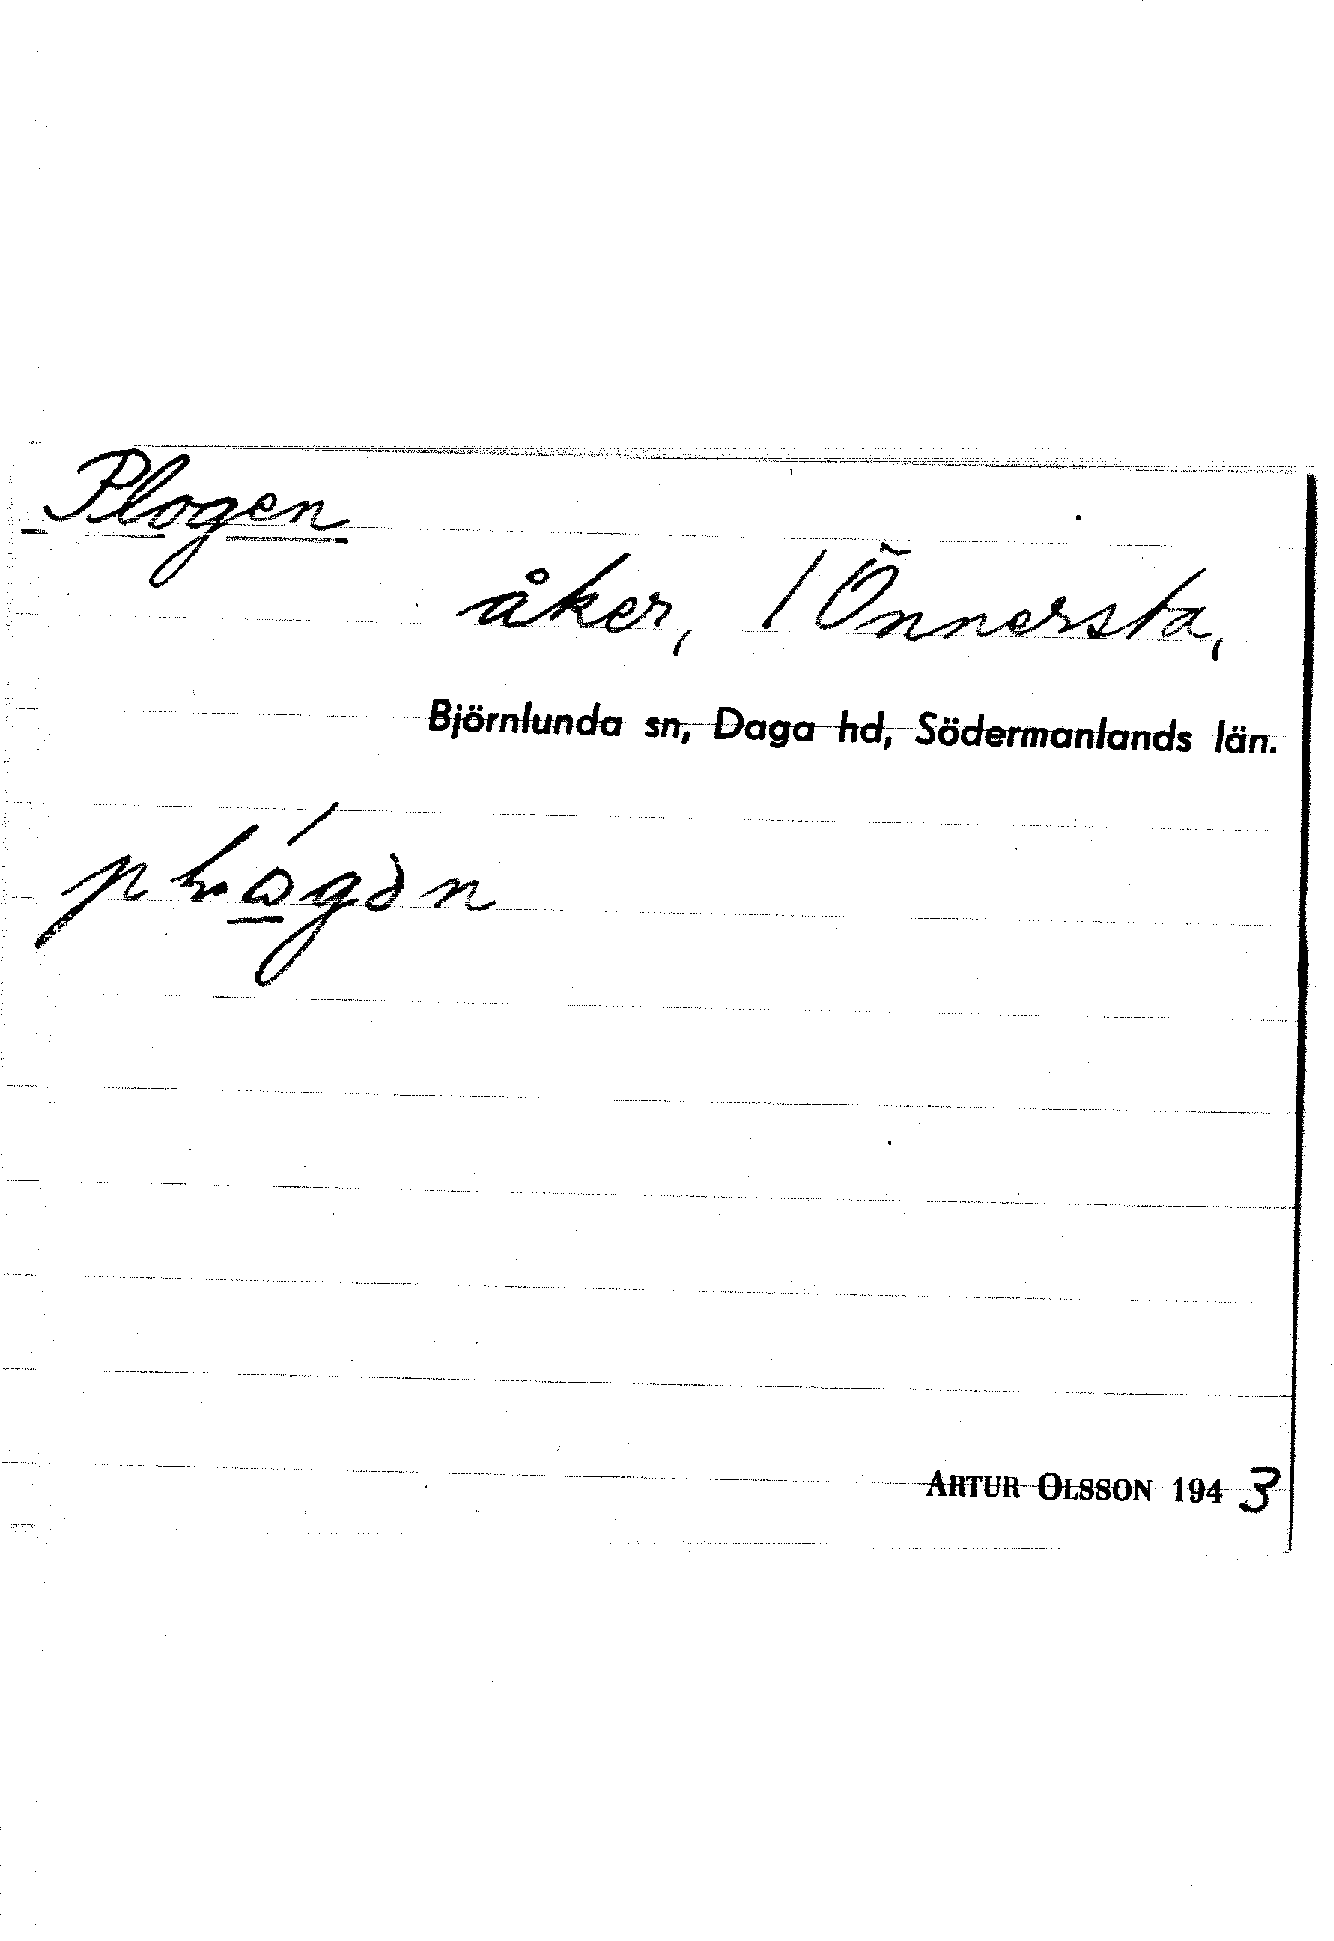 Plogen
åker, / Önnersta,
Björnlunda sn, Daga hd, Södermanlands län.
ARTUR OLSSON 1943